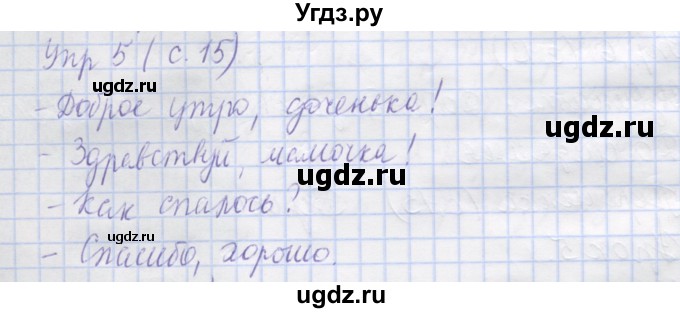 Угдз.ру
Упр 5 (с. 15)
ugdz.ru
- Доброе утро, доченька!
ugdz.ru
- Здравствуй, мамочка!
ugdz.ru
- Как спалось?
ugdz.ru
- Спасибо, хорошо.
ugdz.ru